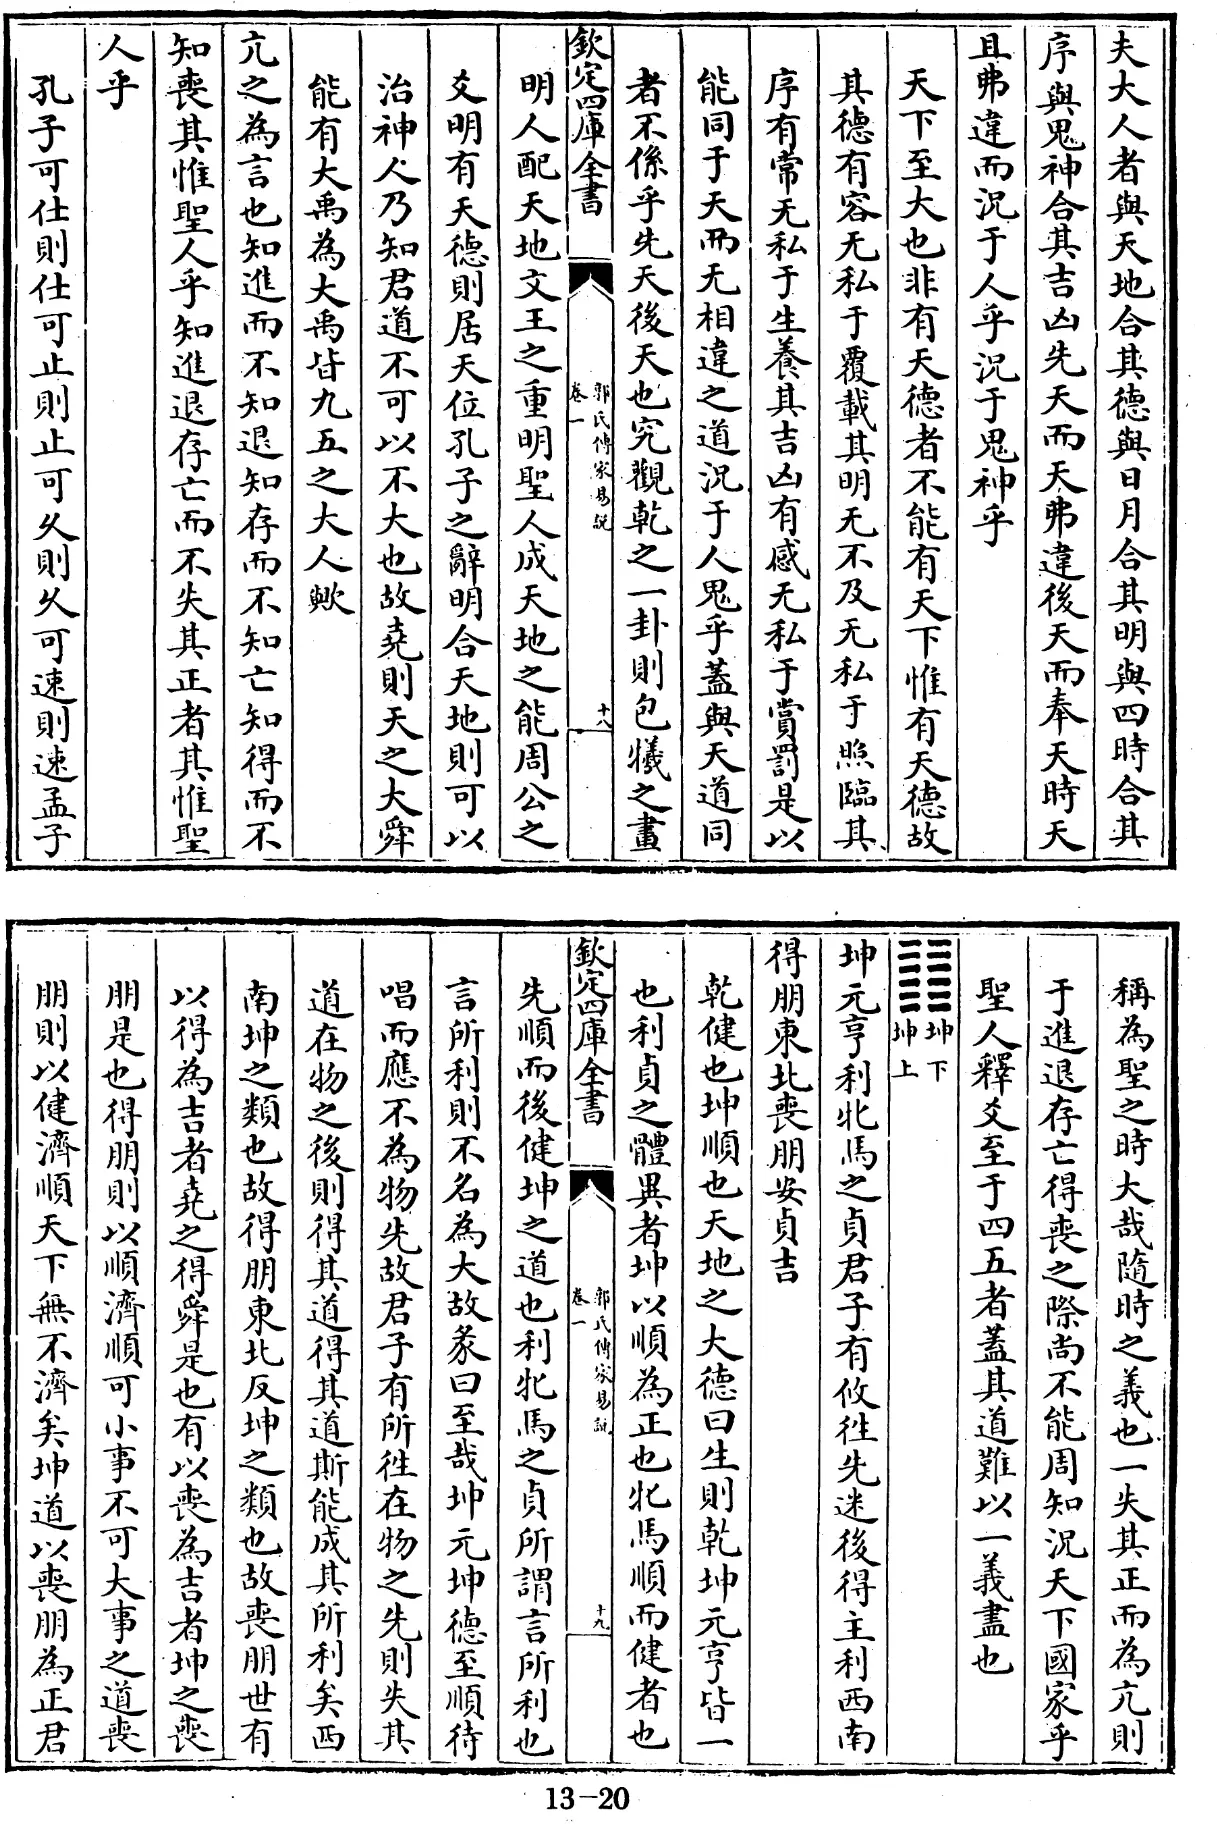 夫大人者與天地合其德與日月合其明與四時合其
序與鬼神合其吉凶先天而天弗違後天而奉天時天
且弗違而況于人乎況于鬼神乎
天下至大也非有天德者不能有天下惟有天德故
其德有容无私于覆載其明无不及无私于照臨其
序有常无私于生養其吉凶有感无私于賞罰是以
能同于天而无相違之道況于人鬼乎蓋與天道同
者不係乎先天後天也究觀乾之一卦則包犧之畫
欽定四庫全書
郭氏傳家易說
卷一
十八
明人配天地文王之重明聖人成天地之能周公之
爻明有天德則居天位孔子之辭明合天地則可以
治神人乃知君道不可以不大也故堯則天之大舜
能有大禹為大禹皆九五之大人歟
亢之為言也知進而不知退知存而不知亡知得而不
知喪其惟聖人乎知進退存亡而不失其正者其惟聖
人乎
孔子可仕則仕可止則止可久則久可速則速孟子
稱為聖之時大哉隨時之義也一失其正而為亢則
于進退存亡得喪之際尚不能周知況天下國家乎
聖人釋爻至于四五者蓋其道難以一義盡也
䷁坤下
坤上
坤元亨利牝馬之貞君子有攸往先迷後得主利西南
得朋東北喪朋安貞吉
乾健也坤順也天地之大德曰生則乾坤元亨皆一
也利貞之體異者坤以順為正也牝馬順而健者也
欽定四庫全書
郭氏傳家易說
卷一
十九
先順而後健坤之道也利牝馬之貞所謂言所利也
言所利則不名為大故彖曰至哉坤元坤德至順待
唱而應不為物先故君子有所往在物之先則失其
道在物之後則得其道得其道斯能成其所利矣西
南坤之類也故得朋東北反坤之類也故喪朋世有
以得為吉者堯之得舜是也有以喪為吉者坤之喪
朋是也得朋則以順濟順可小事不可大事之道喪
朋則以健濟順天下無不濟矣坤道以喪朋為正君
13-20